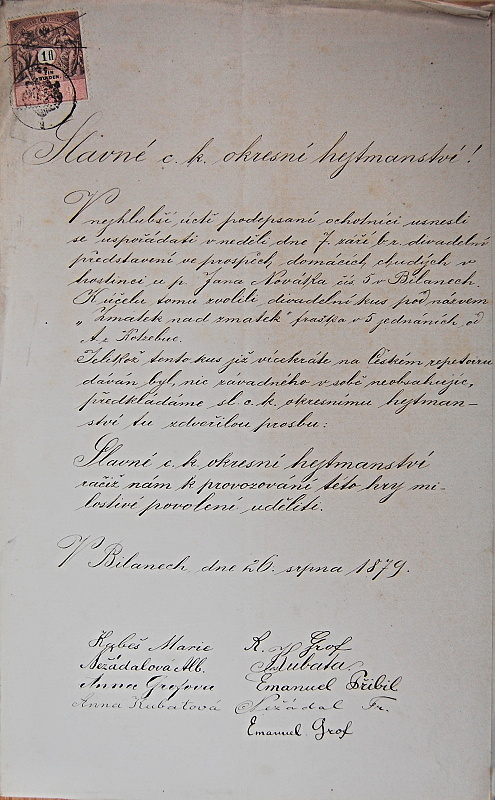 1 fl
Slavné c. k. okresní hejtmanství!
V nejhlubší úctě podepsaní ochotníci usnesli
se uspořádati v neděli dne 7. září b. r. divadelní
představení ve prospěch domácích chudých v
hostinci u p. Jana Nováka čís 5 v Bílanech.
K účelu tomu zvolili divadelní kus pod názvem
„Zmatek nad zmatek" fraška v 5 jednáních od
A. z Kotzebue.
Jelikož tento kus již vícekráte na Českém repertoiru
dáván byl, nic závadného v sobě neobsahujíc,
předkládáme sl. c. k. okresnímu hejtman-
ství tu zdvořilou prosbu:
Slavné c. k. okresní hejtmanství
račiž nám k provozování této hry mi-
lostivé povolení uděliti.
V Bílanech dne 26. srpna 1879.
Marie Grof
Nežádalová Alb. Kubata
Anna Grofova Emanuel Přibil
Anna Kubatová Nežádal Fr.
Emanuel Grof